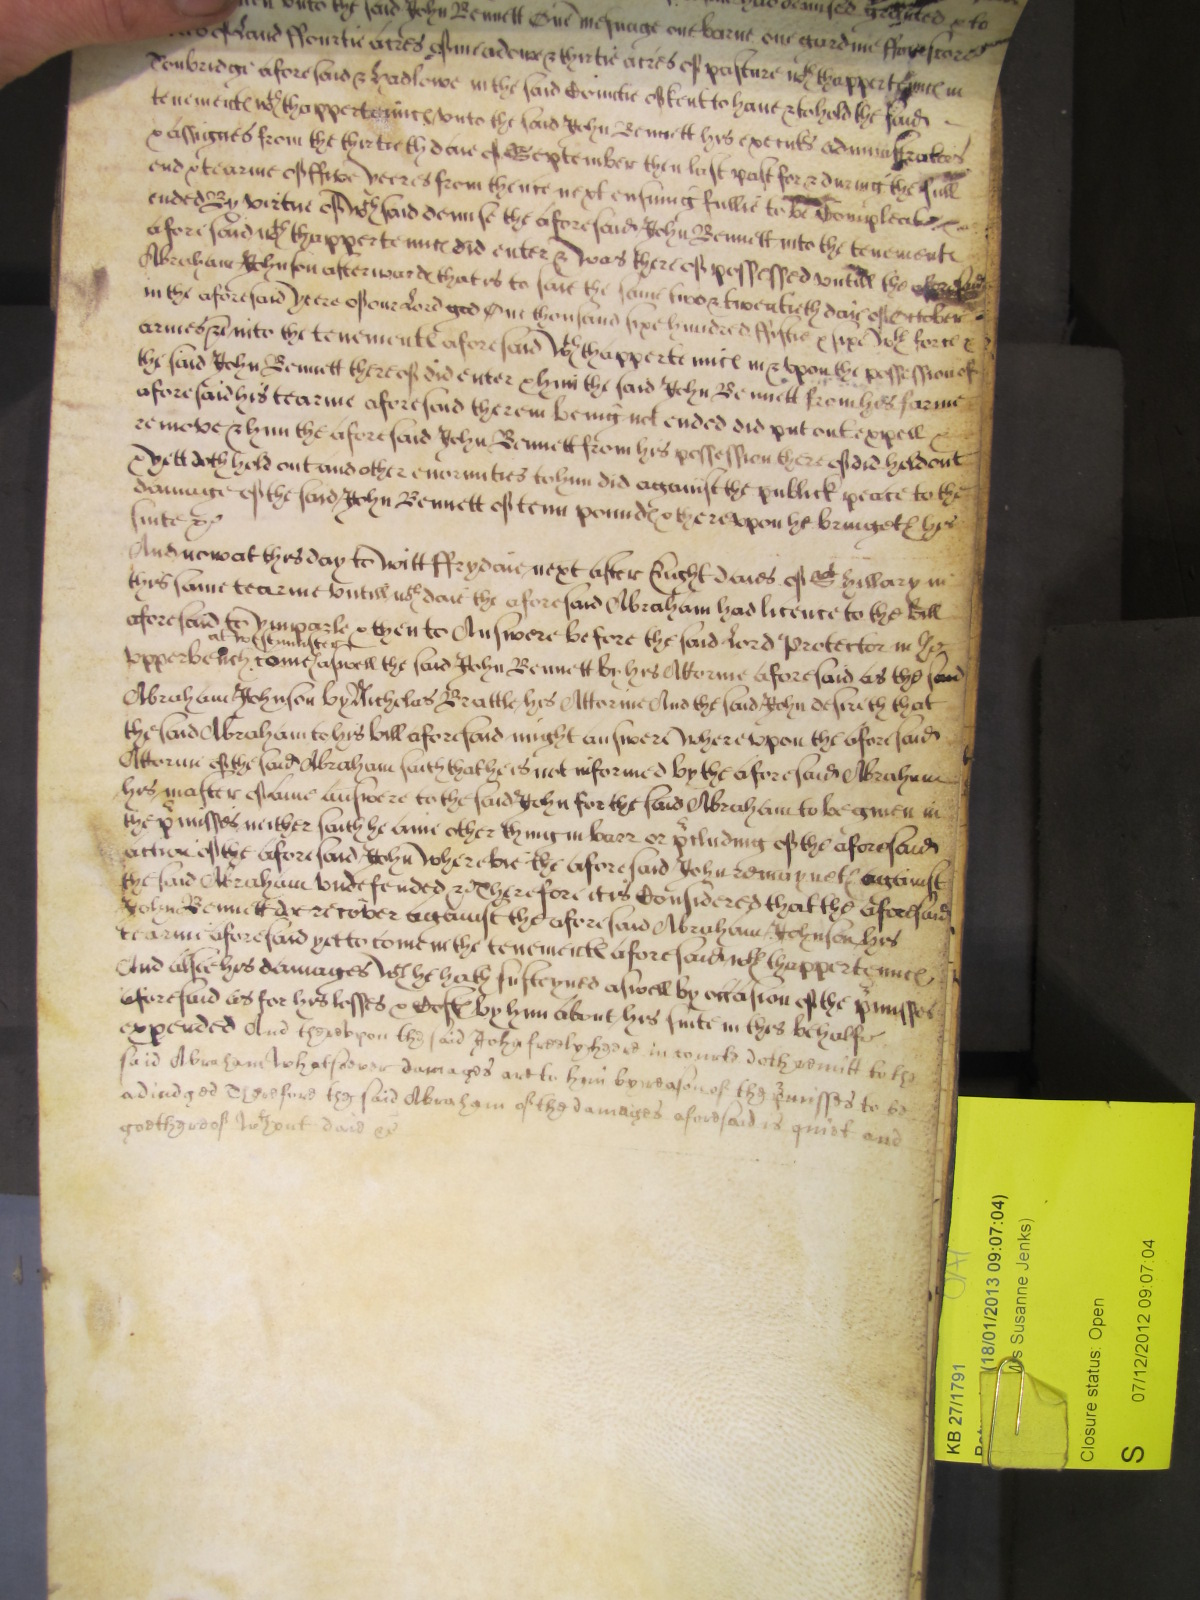 unto the said John Bennett One mesuage one barne one gardine ffourscore
acres of Land ffourtie acres of meadowe & thirtie acres of pasture wth thappertennces in
Tonbridge aforesaid & Hadlowe in the said Countie of Kent to have & to hold the said
tenementes wth thappertennces unto the said John Bennett his executrs administrators
& assignes from the thirtieth daie of September then last past for & during the full
end & tearme of ffive yeeres from thence next ensuing fullie to be Compleat &
ended By virtue of wch said demise the aforesaid John Bennett into the tenementes
aforesaid wth thappertennces did enter & was thereof possessed untill the aforesaid
Abraham Johnson afterwardes that is to saie the same two & twentieth daie of October
in the aforesaid yeere of our Lord god One thousand sixe hundred ffiftie & sixe wth force &
armes &c into the tenementes aforesaid wth thappertennces in & upon the possession of
the said John Bennett thereof did enter & him the said John Bennett from his farme
aforesaid his tearme aforesaid therein being not ended did put out expell &
remove & him the aforesaid John Bennett from his possession thereof did hold out
& yett doth hold out and other enormities to him did against the publick peace to the
damage of the said John Bennett of tenn poundes & thereupon he bringeth his
suite &c
And now at this day to witt ffrydaie next after Eight daies of St Hillary in
this same tearme untill wch daie the aforesaid Abraham had licence to the bill
aforesaid to ymparle & then to Answere before the said Lord Protector in the
upperbench at Westminster come aswell the said John Bennett by his Attornie aforesaid as the said
Abraham Johnson by Nicholas Brattle his Attornie And the said John desireth that
the said Abraham to his bill aforesaid might answere whereupon the aforesaid
Attornie of the said Abraham saith that he is not informed by the aforesaid Abraham
his master of anie answere to the said John for the said Abraham to be given in
the pmisses neither saith he anie other thing in barr or pcluding of the aforesaid
action of the aforesaid John whereby the aforesaid John remayneth against
the said Abraham undefended &c Therefore it is Considered that the aforesaid
John Bennett doe recover against the aforesaid Abraham Johnson his
tearme aforesaid yet to come in the tenementes aforesaid wth thappertennces
And alsoe his damages wch he hath susteyned aswell by occasion of the pmisses
aforesaid as for his losses & Costes by him about his suite in this behalfe
expended And thereupon the said John freely heere in courte doth remitt to the
said Abraham whatsoever damages are to him by reason of the pmisses to be
adiudged Therefore the said Abraham of the damages aforesaid is quiet and
goe thereof wthout daie &c
KB 27/1791
(18/01/2013 09:07:04)
Susanne Jenks)
Closure status: Open
S 07/12/2012 09:07:04